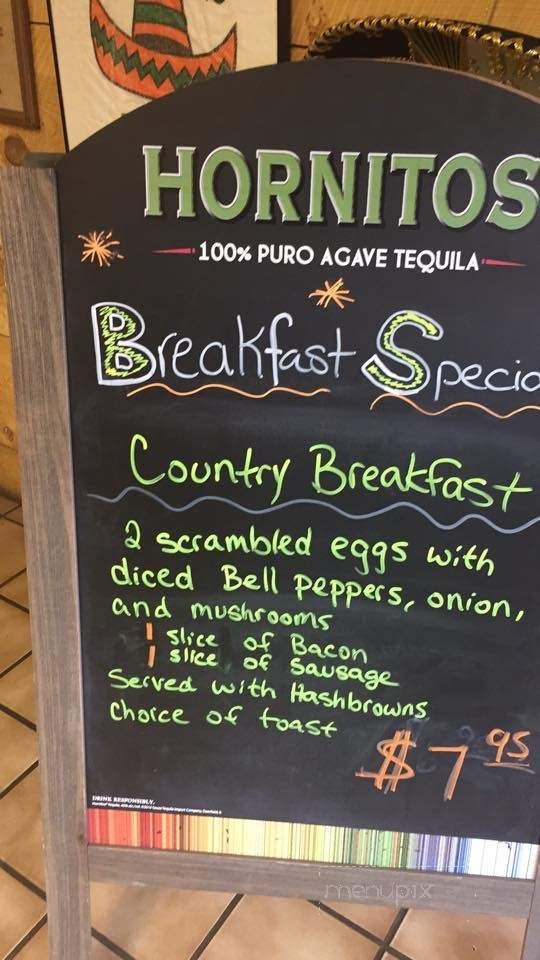 HORNITOS
100% PURO AGAVE TEQUILA
Breakfast Specia
Country Breakfast
2 scrambled eggs with
diced Bell peppers, onion,
and mushrooms
1 slice of Bacon
1 slice of Sausage
Served with Hashbrowns
Choice of toast
$7.95
DRINK RESPONSIBLY.
menupix